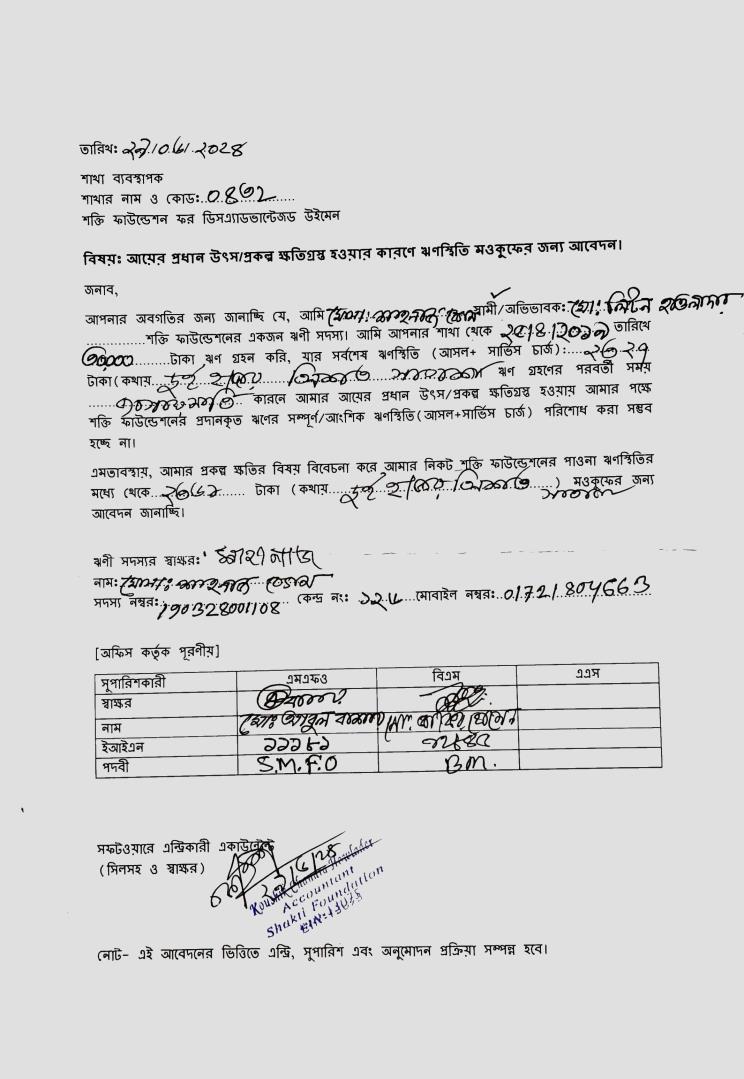 তারিখ: ২৭/০৬/২০২৪
শাখা ব্যবস্থাপক
শাখার নাম ও কোড:..0৪৩২
শক্তি ফাউন্ডেশন ফর ডিসএ্যাডভান্টেজড উইমেন
বিষয়: আয়ের প্রধান উৎস/প্রকল্প ক্ষতিগ্রস্ত হওয়ার কারণে ঋণস্থিতি মওকুফের জন্য আবেদন।
জনাব,
আপনার অবগতির জন্য জানাচ্ছি যে, আমি মোসা: শাহনাজ বেগম স্বামী/অভিভাবক: মো: লিটন হাওলাদার
শক্তি ফাউন্ডেশনের একজন ঋণী সদস্য। আমি আপনার শাখা থেকে তারিখে
৩০,০০০ টাকা ঋণ গ্রহন করি, যার সর্বশেষ ঋণস্থিতি (আসল+ সার্ভিস চার্জ):
টাকা(কথায় দুই হাজার ঋণ গ্রহণের পরবর্তী সময়
কারনে আমার আয়ের প্রধান উৎস/প্রকল্প ক্ষতিগ্রস্ত হওয়ায় আমার পক্ষে
শক্তি ফাউন্ডেশনের প্রদানকৃত ঋণের সম্পূর্ণ/আংশিক ঋণস্থিতি(আসল+সার্ভিস চার্জ) পরিশোধ করা সম্ভব
হচ্ছে না।
এমতাবস্থায়, আমার প্রকল্প ক্ষতির বিষয় বিবেচনা করে আমার নিকট শক্তি ফাউন্ডেশনের পাওনা ঋণস্থিতির
মধ্যে থেকে টাকা (কথায় দুই হাজার ) মওকুফের জন্য
আবেদন জানাচ্ছি।
ঋণী সদস্যর স্বাক্ষর: শাহানাজ
নাম: মোসা: শাহনাজ বেগম
সদস্য নম্বর: 190328001108 কেন্দ্র নং: ১২৬ মোবাইল নম্বর: 01721804663
[অফিস কর্তৃক পূরণীয়]
সুপারিশকারী এমএফও বিএম এএস
স্বাক্ষর
নাম মোঃ আবুল বাশার
ইআইএন ১১১৮১
পদবী S.M.F.O BM.
সফটওয়ারে এন্ট্রিকারী একাউন্টেন্ট
(সিলসহ ও স্বাক্ষর)
Koushik Chandra Howlader
Accountant
Shakti Foundation
নোট- এই আবেদনের ভিত্তিতে এন্ট্রি, সুপারিশ এবং অনুমোদন প্রক্রিয়া সম্পন্ন হবে।